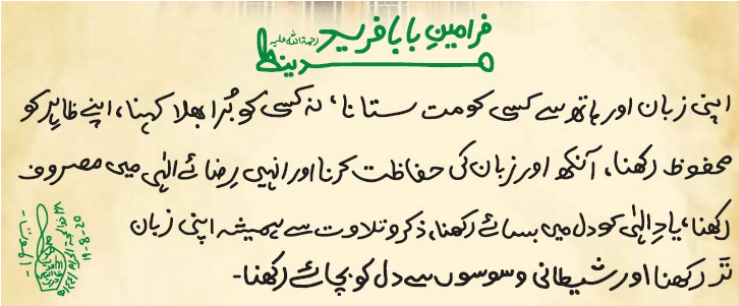 فرامینِ بابا فرید رحمۃ اللہ علیہ
مدینہ
اپنی زبان اور ہاتھ سے کسی کو مت ستانا، نہ کسی کو بُرا بھلا کہنا، اپنے ظاہر کو
محفوظ رکھنا، آنکھ اور زبان کی حفاظت کرنا اور انہیں رِضائے الٰہی میں مصروف
رکھنا، یادِ الٰہی کو دل میں بسائے رکھنا، ذکر و تلاوت سے ہمیشہ اپنی زبان
تَر رکھنا اور شیطانی وسوسوں سے دل کو بچائے رکھنا۔
19-8-20